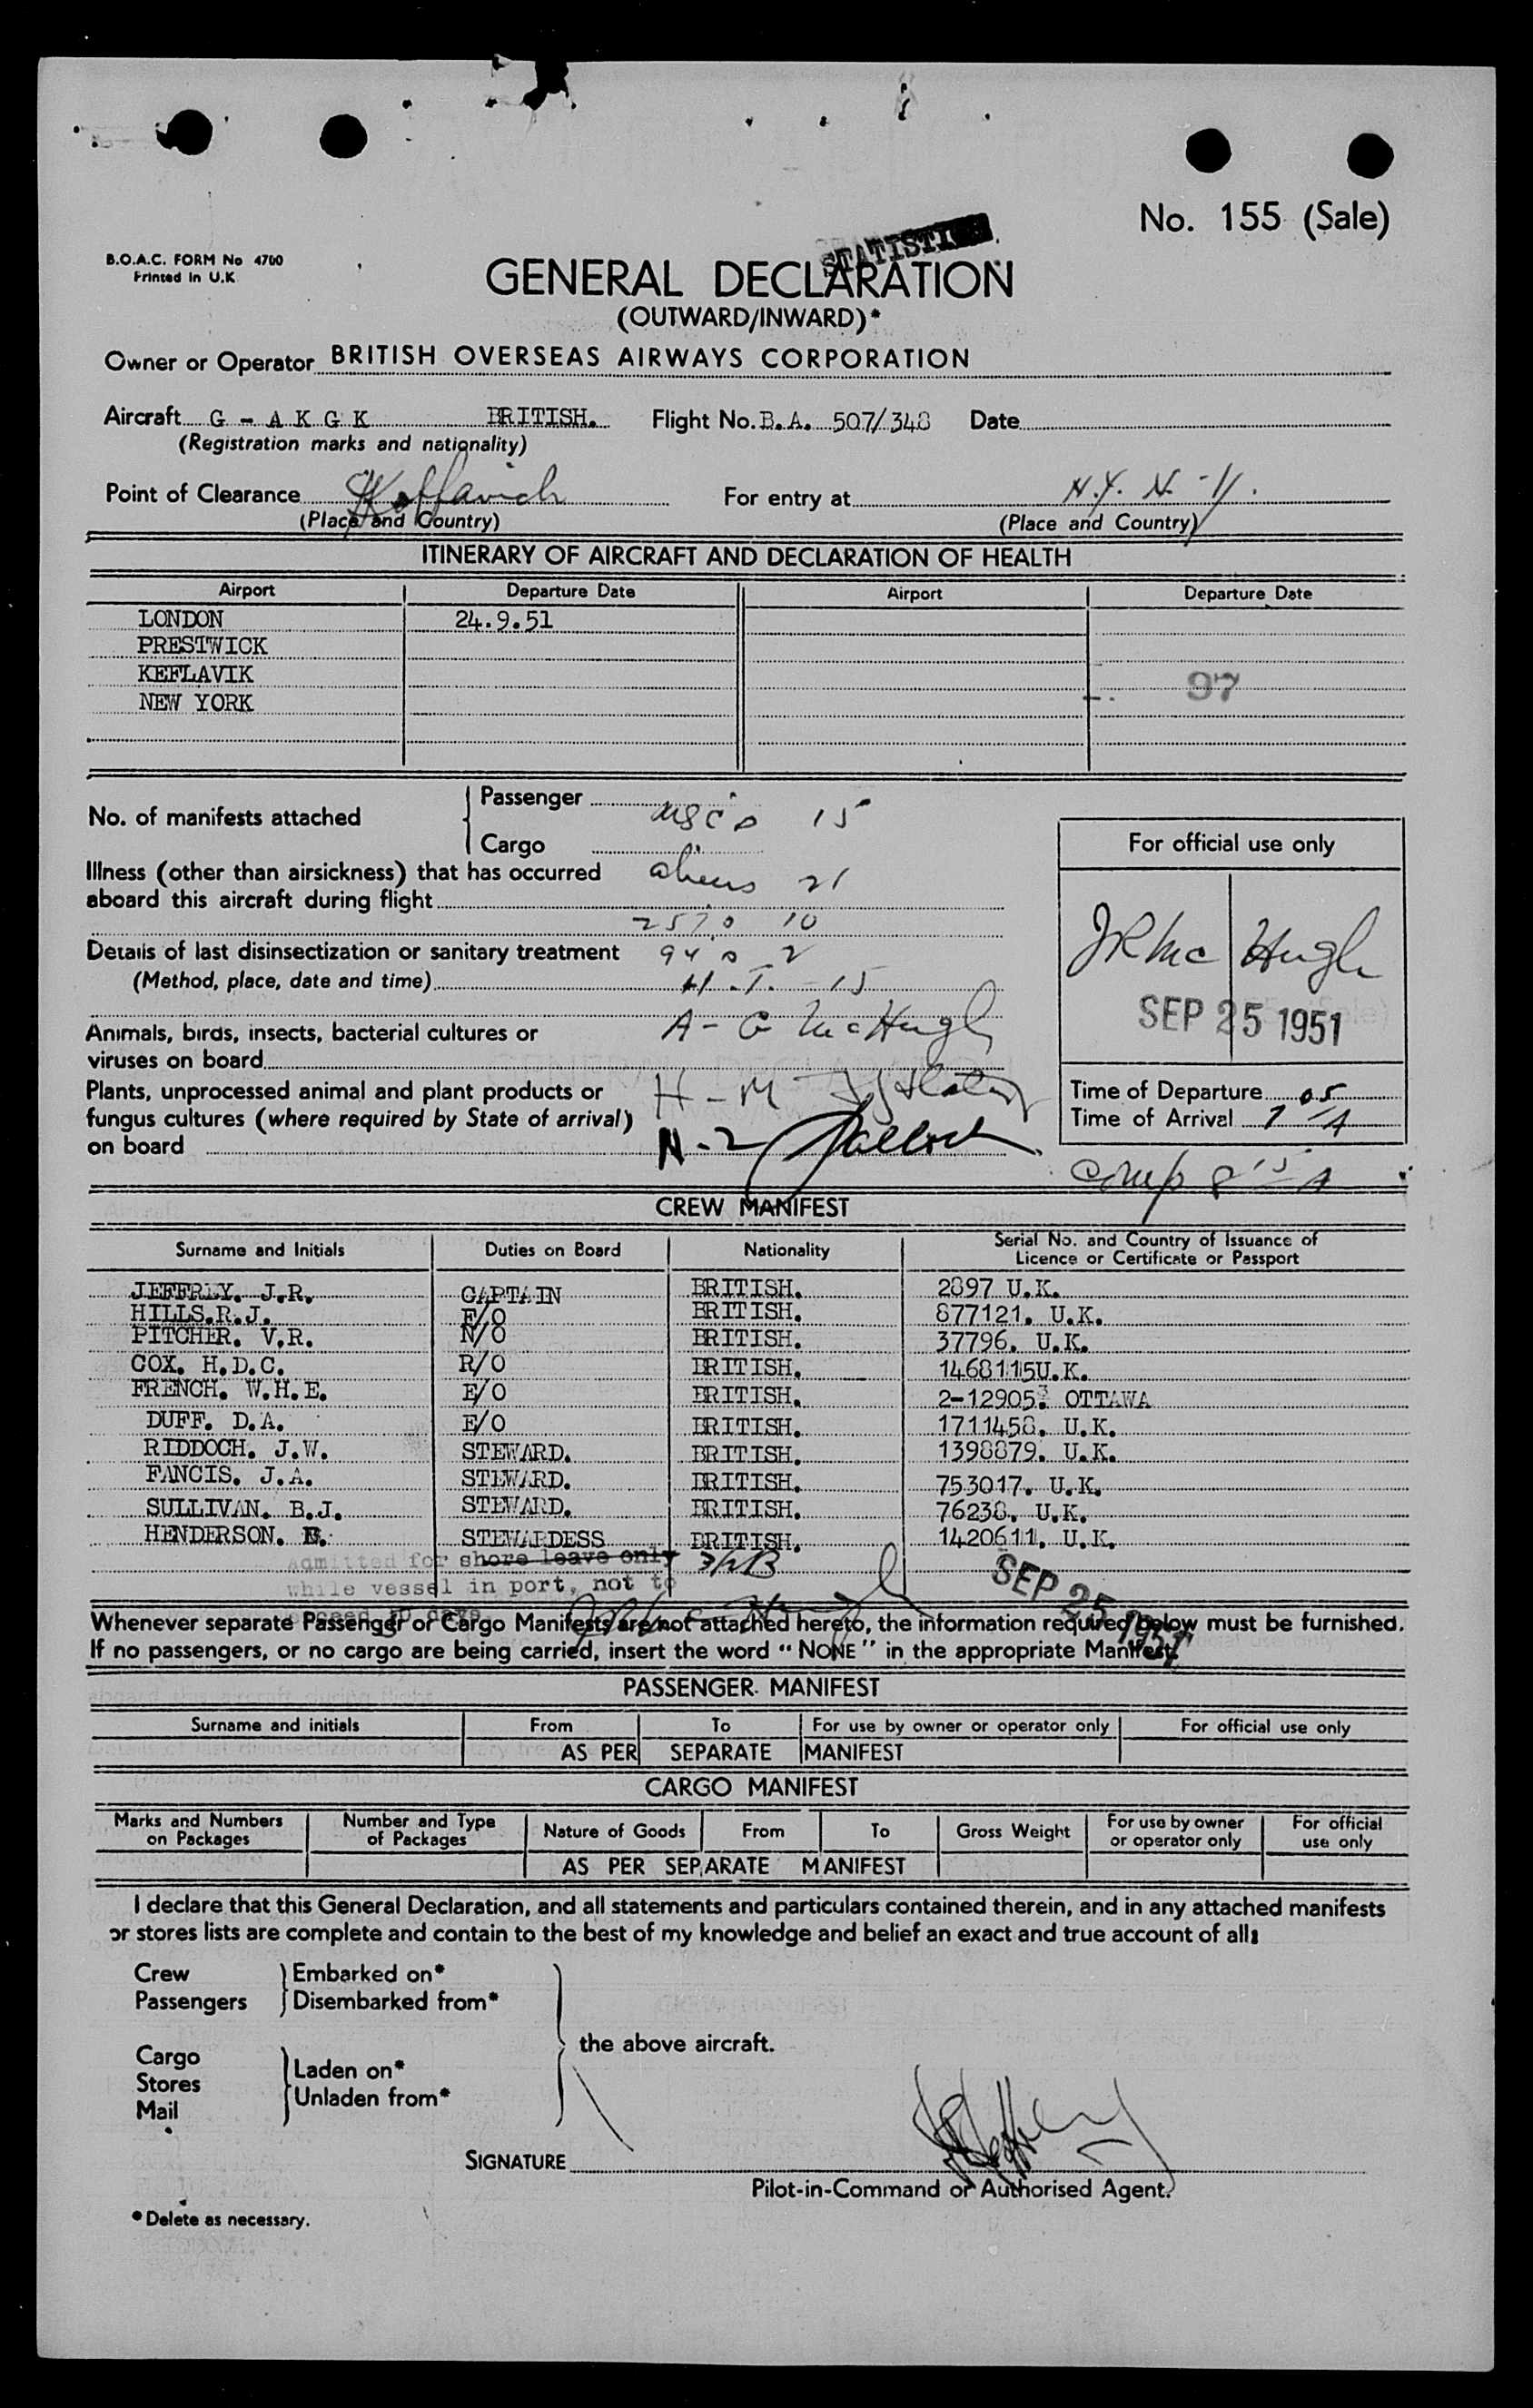 No. 155 (Sale)
B.O.A.C. FORM No 4700
Printed in U.K
GENERAL DECLARATION
(OUTWARD/INWARD)*
Owner or Operator BRITISH OVERSEAS AIRWAYS CORPORATION
Aircraft G - A K G K BRITISH. Flight No. B.A. 507/348 Date
(Registration marks and nationality)
Point of Clearance For entry at N.Y. N.Y.
(Place and Country) (Place and Country)
ITINERARY OF AIRCRAFT AND DECLARATION OF HEALTH
Airport Departure Date Airport Departure Date
LONDON 24.9.51
PRESTWICK
KEFLAVIK 97
NEW YORK
No. of manifests attached Passenger
USC's 15
Cargo
For official use only
Illness (other than airsickness) that has occurred aliens 21
aboard this aircraft during flight
10
Details of last disinsectization or sanitary treatment 2
(Method, place, date and time) H.T. - 15
JR Mc Hugh
SEP 25 1951
Animals, birds, insects, bacterial cultures or A - G McHugh
viruses on board
Plants, unprocessed animal and plant products or H - M
fungus cultures (where required by State of arrival)
on board N-2
Time of Departure
Time of Arrival 7 05 A
Comp 8 15 A
CREW MANIFEST
Surname and Initials Duties on Board Nationality Serial No. and Country of Issuance of Licence or Certificate or Passport
JEFFREY. J.R. CAPTAIN BRITISH. 2897 U.K.
HILLS.R.J. F/O BRITISH. 877121. U.K.
PITCHER. V.R. N/O BRITISH. 37796. U.K.
COX. H.D.C. R/O BRITISH. 1468115U.K.
FRENCH. W.H.E. E/O BRITISH. 2-129053. OTTAWA
DUFF. D.A. E/O BRITISH. 1711458. U.K.
RIDDOCH. J.W. STEWARD. BRITISH. 1398879. U.K.
FANCIS. J.A. STEWARD. BRITISH. 753017. U.K.
SULLIVAN. B.J. STEWARD. BRITISH. 76238. U.K.
HENDERSON. E. STEWARDESS BRITISH. 1420611. U.K.
Admitted for shore leave only
while vessel in port, not to
exceed 30 days
SEP 25 1951
Whenever separate Passenger or Cargo Manifests are not attached hereto, the information required below must be furnished.
If no passengers, or no cargo are being carried, insert the word "NONE" in the appropriate Manifest.
PASSENGER MANIFEST
Surname and initials From To For use by owner or operator only For official use only
AS PER SEPARATE MANIFEST
CARGO MANIFEST
Marks and Numbers on Packages Number and Type of Packages Nature of Goods From To Gross Weight For use by owner or operator only For official use only
AS PER SEPARATE MANIFEST
I declare that this General Declaration, and all statements and particulars contained therein, and in any attached manifests
or stores lists are complete and contain to the best of my knowledge and belief an exact and true account of all:
Crew Embarked on*
Passengers Disembarked from*
the above aircraft.
Cargo
Stores Laden on*
Mail Unladen from*
SIGNATURE JR Jeffrey
Pilot-in-Command or Authorised Agent.
* Delete as necessary.